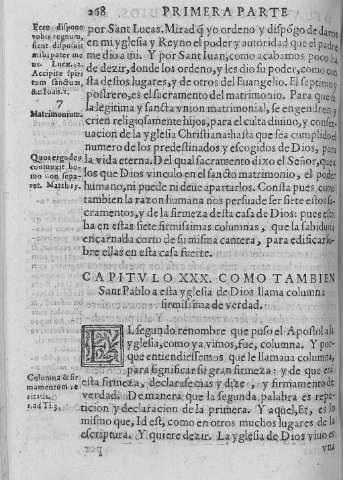 268 PRIMERA PARTE
Ecce dispono
vobis regnum,
sicut disposuit
mihi pater me
us. Luc. 22.
Accipite spiri
tum sanctum,
&c. Ioan. 2.
7
Matrimonium.
Quos ergo deus
coniunxit ho
mo non sepa-
ret. Matth. 19.
por Sant Lucas. Mirad q̃ yo ordeno y dispõgo de daros
en mi yglesia y Reyno el poder y autoridad que el padre
me dio a mi. Y por Sant Iuan, como acabamos poco ha
de dezir, donde los ordeno, y les dio su poder, como con
sta destos lugares, y de otros del Euangelio. El septimo y
postrero, es el sacramento del matrimonio. Para que ẽ
la legitima y sancta vnion matrimonial, se engendren y
crien religiosamente hijos, para el culta diuino, y conti-
nuacion de la yglesia Christiana: hasta que sea cumplido el
numero de los predestinados y escogidos de Dios, para
la vida eterna. Del qual sacramento dixo el Señor, que a
los que Dios vinculo en el sancto matrimonio, el poder
humano, ni puede ni deue apartarlos. Consta pues, como
tambien la razon humana nos persuade ser siete estos sa-
cramentos, y de la firmeza desta casa de Dios: pues estri
ba en estas siete firmissimas columnas, que la sabiduria
encarnada corto de su misma cantera, para edificar so-
bre ellas en esta casa fuerte.
CAPITVLO XXX. COMO TAMBIEN
Sant Pablo a esta yglesia de Dios llama columna
firmissima de verdad.
EL segundo renombre que puso el Apostol a la
yglesia, como ya vimos, fue, columna. Y por-
que entiendiessemos que le llamaua columna,
para significar su gran firmeza: y de que era
esta firmeza, declarase mas y dize, y firmamento de
verdad. De manera que la segunda palabra es repe-
ticion y declaracion de la primera. Y aquel, Et, es lo
mismo que, Id est, como en otros muchos lugares de la
escriptura. Y quiere dezir. La yglesia de Dios viuo es
vna
Columna & fir
mamentum ve
ritatis.
1. ad Ti. 3.